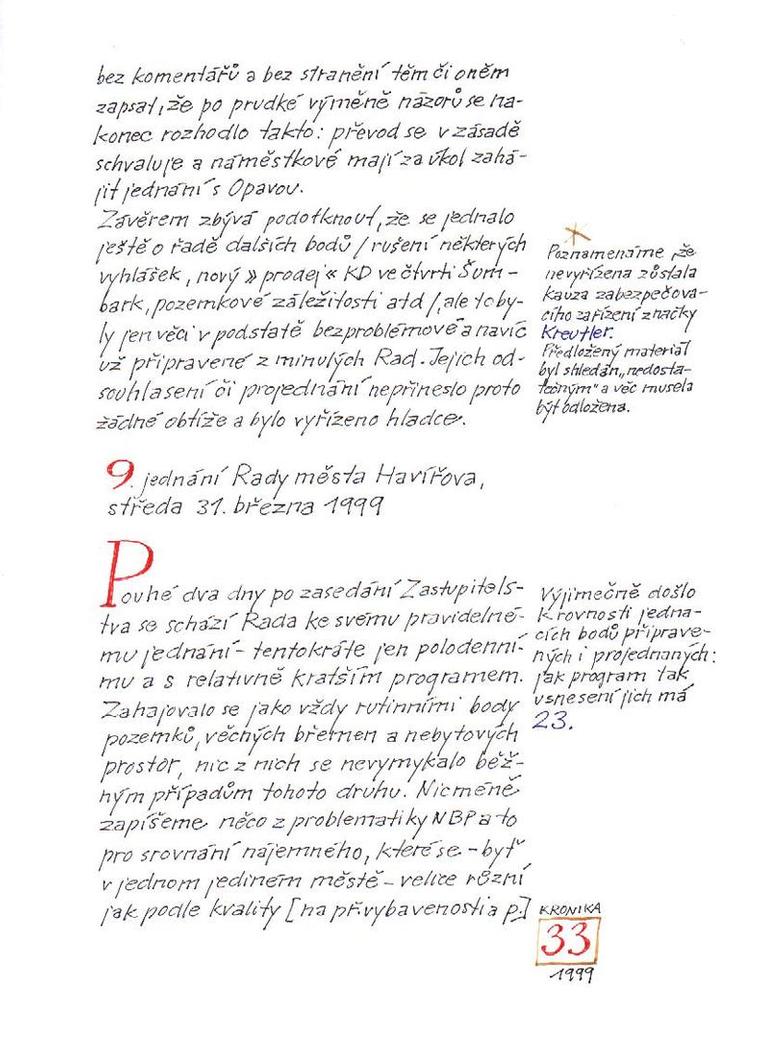 bez komentářů a bez stranění těm či oněm
zapsat, že po prudké výměně názorů se na-
konec rozhodlo takto: převod se v zásadě
schvaluje a náměstkové mají za úkol zahá-
jit jednání s Opavou.
Závěrem zbývá podotknout, že se jednalo
ještě o řadě dalších bodů / rušení některých
vyhlášek, nový » prodej « KD ve čtvrti Šum-
bark, pozemkové záležitosti atd /, ale to by-
ly jen věci v podstatě bezproblémové a navíc
už připravené z minulých Rad. Jejich od-
souhlasení či projednání nepřineslo proto
žádné obtíže a bylo vyřízeno hladce.
Poznamenáme, že
nevyřízena zůstala
kauza zabezpečova-
cího zařízení značky
Kreutler.
Předložený materiál
byl shledán „nedosta-
tečným" a věc musela
být odložena.
9. jednání Rady města Havířova,
středa 31. března 1999
Pouhé dva dny po zasedání Zastupitels-
tva se schází Rada ke svému pravidelné-
mu jednání - tentokráte jen polodenní-
mu a s relativně kratším programem.
Zahajovalo se jako vždy rutinními body
pozemků, věcných břemen a nebytových
prostor, nic z nich se nevymykalo běž-
ným případům tohoto druhu. Nicméně
zapíšeme něco z problematiky NBP a to
pro srovnání nájemného, které se - byť
v jednom jediném městě - velice různí
jak podle kvality [na př. vybavenosti a p.]
Výjimečně došlo
k rovnosti jedna-
cích bodů připrave-
ných i projednaných:
jak program tak
usnesení jich má
23.
KRONIKA
33
1999